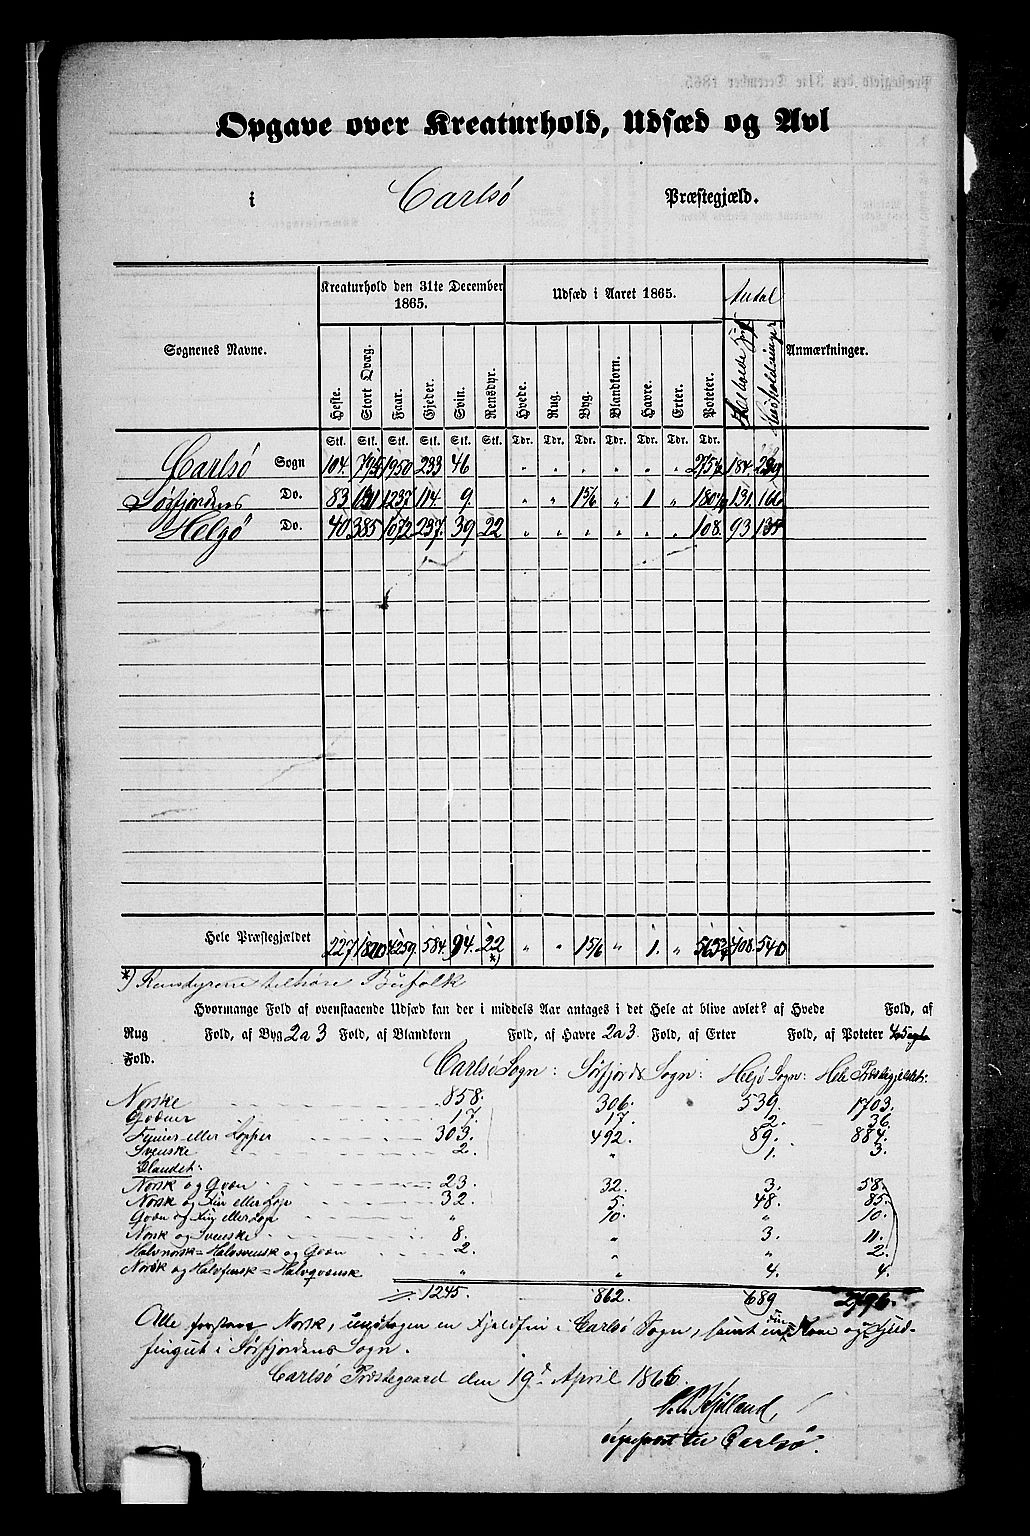 Opgave over Kreaturhold, Udsæd og Avl
i Carlsö Præstegjæld.
Sognenes Navne. Kreaturhold den 31te December 1865. Udsæd i Aaret 1865. Antal Anmærkninger.
Heste. Stort Qvæg. Faar. Gjeder. Svin. Rensdyr. Hvede. Rug. Byg. Blandkorn. Havre. Erter. Poteter. Huusholdninger
Stk. Stk. Stk. Stk. Stk. Stk. Tdr. Tdr. Tdr. Tdr. Tdr. Tdr. Tdr.
Carlsö Sogn 104. 795 1950 233 46 „ „ „ „ „ „ 184
Sörfjordens Do. 83 1237 114. 9. „ „ 1 5/6 „ 1 „ 131.
Helgö Do. 40 385 1072 237. 39 22 „ „ „ „ „ „ 108. 93 135
Hele Præstegjældet 227 4259. 584. 94. 22 *) „ „ 1 5/6 „ 1. „ 408. 540
*) Rensdyrene tilhöre Bufolk
Hvormange Fold af ovenstaaende Udsæd kan der i middels Aar antages i det Hele at blive avlet? af Hvede Fold, af
Rug Fold, af Byg 2 a 3 Fold, af Blandkorn Fold, af Havre 2 a 3. Fold, af Erter Fold, af Poteter
Fold.
Carlsö Sogn: Sörfjords Sogn: Helgö Sogn: Hele Præstegjeldet:
Norske 858. 306. 539. 1703.
Qvæner 17. 17. 2. 36.
Finner eller Lapper 303. 492. 89. 884.
Svenske 2. „ 1. 3.
Blandet:
Norsk og Qvæn 23. 32. 3. 58.
Norsk og Fin eller Lap 32. 5. 48. 85.
Qvæn og Fin eller Lap „ 10. „ 10.
Norsk og Svenske 8. „ 3. 11.
Halvnorsk = Halvsvensk og Qvæn 2. „ „ 2.
Norsk og Halvfinsk = Halvqvænsk „ „ 4. 4.
1245. 862. 689 2796.
Alle forstaae Norsk, undtagen en Fjeldfin i Carlsö Sogn, samt en Kone og
i Sörfjordens Sogn.
Carlsö Præstegaard den 19d April 1866.
til Carlsö.